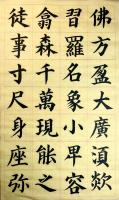 佛方盈大廣湏欻
習羅名象小卑容
翕森千萬現能之
徒事寸尺身座弥